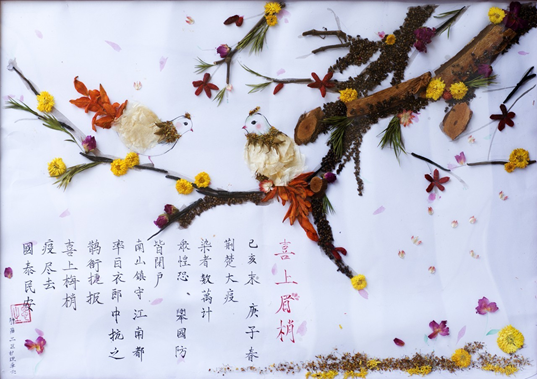 喜上眉梢
己亥末 庚子春
荆楚大疫
染者数万计
众惶恐、举国防
皆闭户
南山镇守江南都
率白衣郎中抗之
鹊衔捷报
喜上梅梢
疫尽去
國泰民安